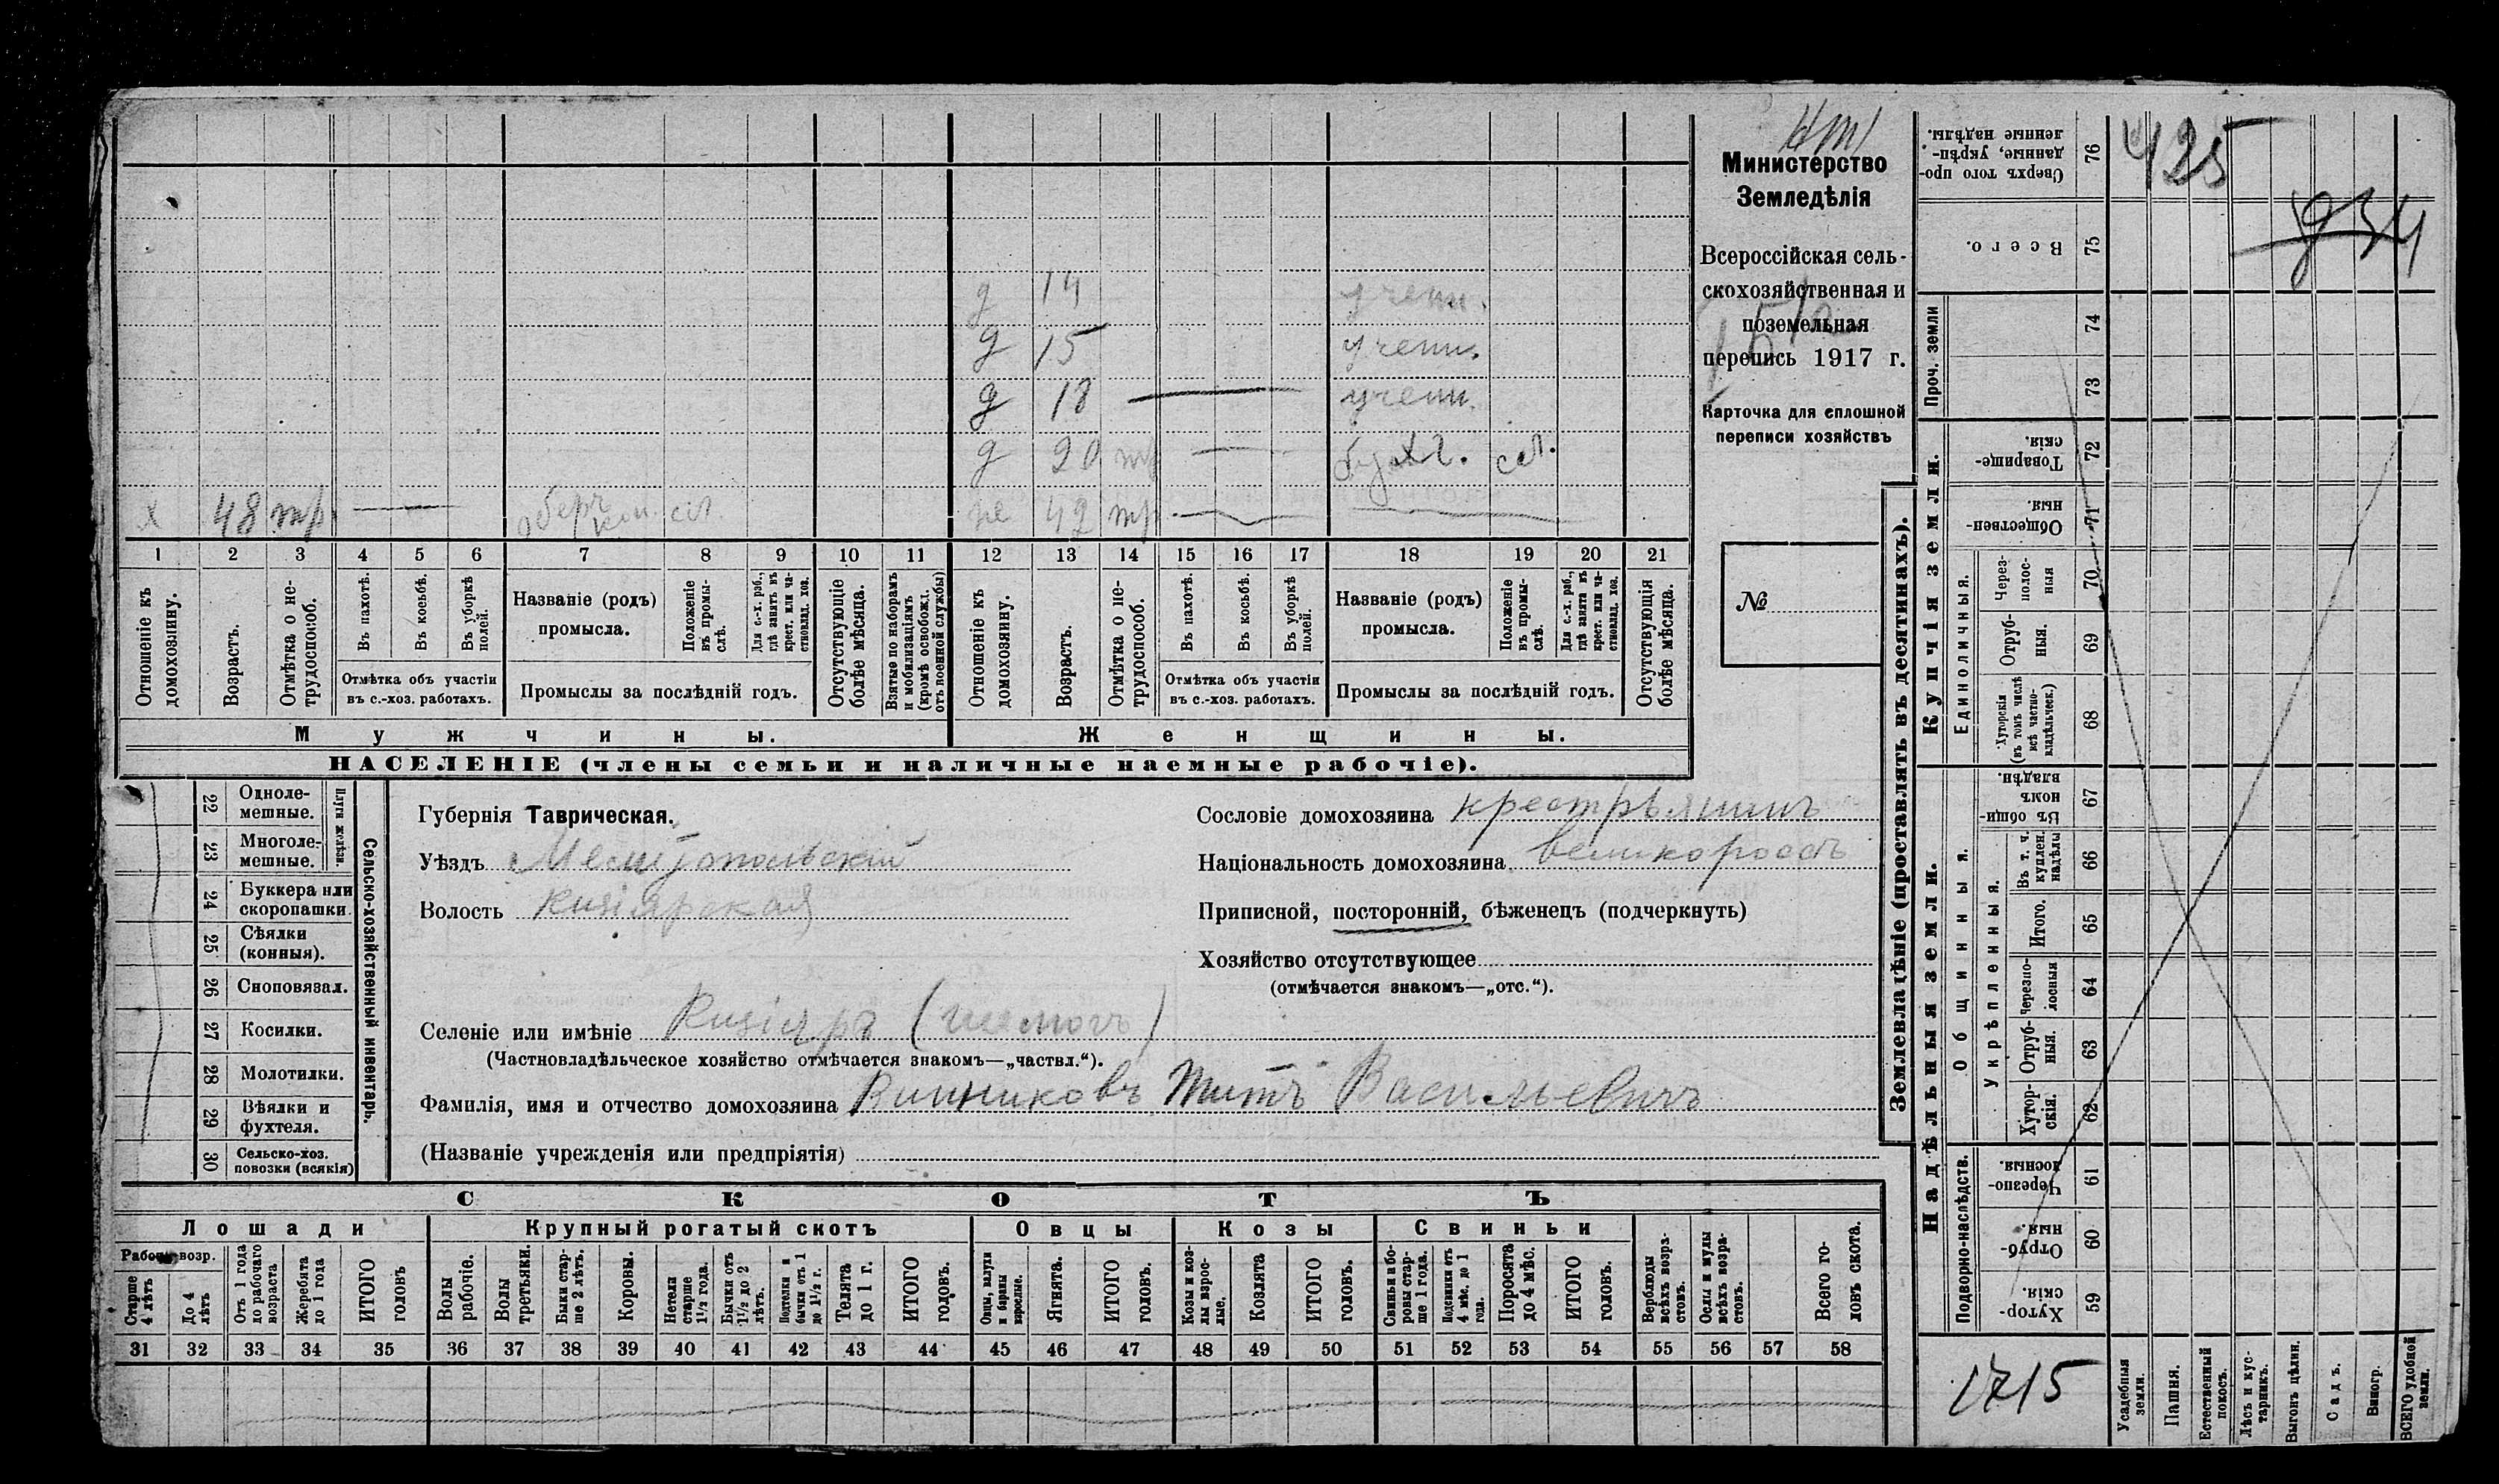 х 48 тр. оберъ кон. сл
же 42 тр.
д 20 тр бухг. сл.
д 18 учени.
д 15 учени.
д 14 учени.
1 2 3 4 5 6 7 8 9 10 11 12 13 14 15 16 17 18 19 20 21
Отношеніе къ домохозяину.
Возрастъ.
Отмѣтка о нетрудоспособ.
Въ пахотѣ.
Въ косьбѣ.
Въ уборкѣ полей.
Отмѣтка объ участіи
въ с.-хоз. работахъ.
Названіе (родъ)
промысла.
Положеніе въ промыслѣ.
Для с.-х. раб., гдѣ занятъ въ крест. или частновлад. хоз.
Промыслы за послѣдній годъ.
Отсутствующіе болѣе мѣсяца.
Взятые по наборамъ и мобилизаціямъ (кромѣ освобожд. отъ военной службы)
Отношеніе къ домохозяину.
Возрастъ.
Отмѣтка о нетрудоспособ.
Въ пахотѣ.
Въ косьбѣ.
Въ уборкѣ полей.
Отмѣтка объ участіи
въ с.-хоз. работахъ.
Названіе (родъ)
промысла.
Положеніе въ промыслѣ.
Для с.-х. раб., гдѣ занята въ крест. или частновлад. хоз.
Промыслы за послѣдній годъ.
Отсутствующія болѣе мѣсяца.
Мужчины. Женщины.
НАСЕЛЕНІЕ (члены семьи и наличные наемные рабочіе).
Министерство
Земледѣлія
Всероссійская сель-
скохозяйственная и
поземельная
перепись 1917 г.
Карточка для сплошной
переписи хозяйствъ
№
22 Одноле-
мешные.
23 Многоле-
мешные.
Плуги желѣзн.
24 Буккера или
скоропашки.
25 Сѣялки
(конныя).
26 Сноповязал.
27 Косилки.
28 Молотилки.
29 Вѣялки и
фухтеля.
30 Сельско-хоз.
повозки (всякія)
Сельско-хозяйственный инвентарь.
Губернія Таврическая.
Уѣздъ Мелитопольскій
Волость Кизіярская
Сословіе домохозяина крестьянинъ
Національность домохозяина великороссъ
Приписной, посторонній, бѣженецъ (подчеркнуть)
Хозяйство отсутствующее
(отмѣчается знакомъ—„отс.“).
Селеніе или имѣніе Кизіяръ
(Частновладѣльческое хозяйство отмѣчается знакомъ—„частвл.“).
Фамилія, имя и отчество домохозяина Винниковъ Титъ Васильевичъ
(Названіе учрежденія или предпріятія)
СКОТЪ
Лошади Крупный рогатый скотъ Овцы Козы Свиньи
Рабоч. возр.
Старше 4 лѣтъ
До 4 лѣтъ
Отъ 1 года до рабочаго возраста
Жеребята до 1 года
ИТОГО головъ
Волы рабочіе.
Волы третьяки.
Быки старше 2 лѣтъ.
Коровы.
Нетели старше 1½ года.
Бычки отъ 1½ до 2 лѣтъ.
Подтелки и бычки отъ 1 до 1½ г.
Телята до 1 г.
ИТОГО головъ.
Овцы, валухи и бараны взрослые.
Ягнята.
ИТОГО головъ.
Козы и козлы взрослые.
Козлята
ИТОГО головъ.
Свиньи и боровы старше 1 года.
Подсвинки отъ 4 мѣс. до 1 года.
Поросята до 4 мѣс.
ИТОГО головъ.
Верблюды всѣхъ возрастовъ.
Ослы и мулы всѣхъ возрастовъ.
Всего головъ скота.
31 32 33 34 35 36 37 38 39 40 41 42 43 44 45 46 47 48 49 50 51 52 53 54 55 56 57 58
Землевладѣніе (проставлять въ десятинахъ).
Надѣльныя земли. Купчія земли. Проч. земли
Подворно-наслѣдств.
Общинныя.
Укрѣпленныя.
Единоличныя.
59 Хуторскія.
60 Отрубныя.
61 Черезполосныя.
62 Хуторскія.
63 Отрубныя.
64 Черезполосныя
65 Итого.
66 Въ т. ч. куплен. надѣлы
67 Въ общинномъ владѣн.
68 Хуторскія (въ томъ числѣ всѣ частновладѣльческ.)
69 Отрубныя.
70 Черезполосныя
71 Общественныя
72 Товарищескія.
73
74
75 Всего.
76 Сверхъ того проданные, укрѣпленные надѣлы.
425
д 34
1715
Усадебныя земли.
Пашня.
Естественный покосъ.
Лѣсъ и кустарникъ.
Выгонъ цѣлин.
Садъ.
Виногр.
ВСЕГО удобной земли.